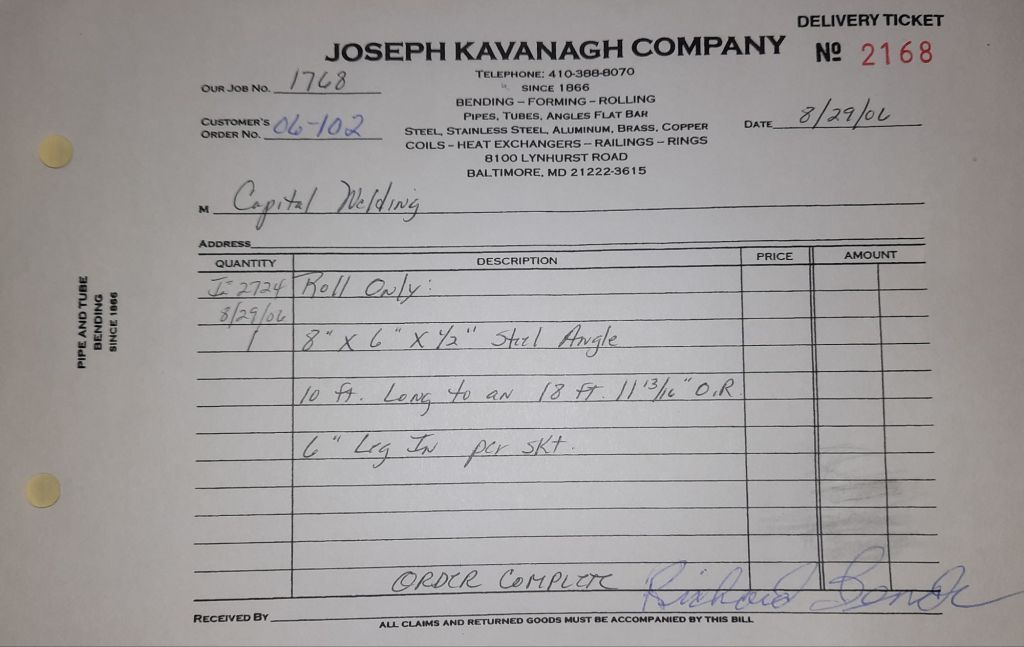 DELIVERY TICKET
JOSEPH KAVANAGH COMPANY
Nº 2168
TELEPHONE: 410-388-8070
OUR JOB NO. 1768
SINCE 1866
BENDING – FORMING – ROLLING
PIPES, TUBES, ANGLES FLAT BAR
CUSTOMER'S ORDER NO. 06-102
STEEL, STAINLESS STEEL, ALUMINUM, BRASS, COPPER
DATE 8/29/06
COILS – HEAT EXCHANGERS – RAILINGS – RINGS
8100 LYNHURST ROAD
BALTIMORE, MD 21222-3615
M Capital Welding
ADDRESS
QUANTITY DESCRIPTION PRICE AMOUNT
I-2724 Roll Only:
8/29/06
1 8" X 6" X 1/2" Steel Angle
10 ft. Long to an 18 ft. 11 13/16" O.R.
6" Leg In per skt.
ORDER COMPLETE Richard
RECEIVED BY
ALL CLAIMS AND RETURNED GOODS MUST BE ACCOMPANIED BY THIS BILL
PIPE AND TUBE
BENDING
SINCE 1866